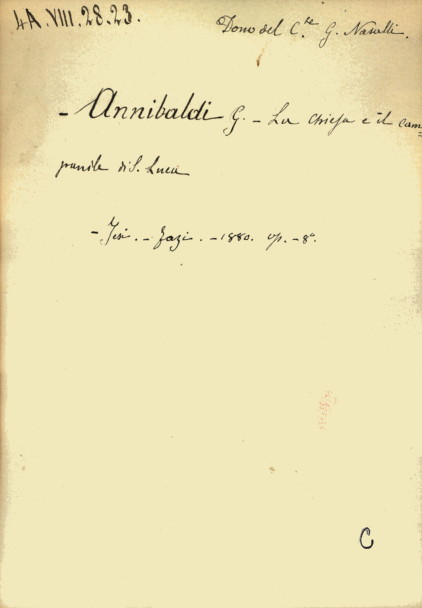 4A.VIII.28.23.
Dono del C.te G. Naselli.
- Annibaldi G. - La chiesa e il cam=
panile di S. Luca
- Jesi. - Fazi. - 1880. op. - 8°.
C